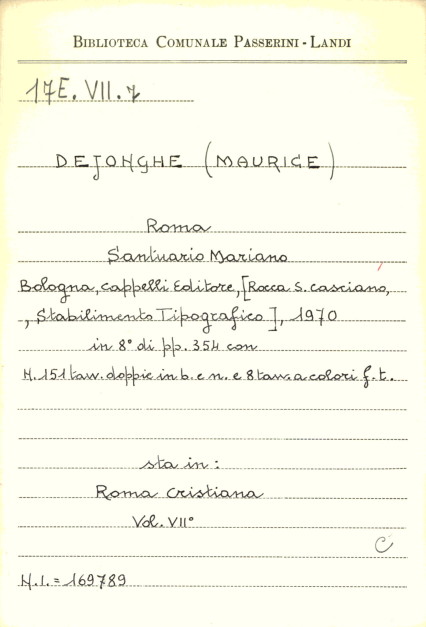 BIBLIOTECA COMUNALE PASSERINI-LANDI
17E. VII. 7
DEJONGHE (MAURICE)
Roma
Santuario Mariano
Bologna, Cappelli Editore, [Rocca S. Casciano,
, Stabilimento Tipografico], 1970
in 8° di pp. 354 con
N. 151 tav. doppie in b. e n. e 8 tav. a colori f. t.
sta in:
Roma Cristiana
Vol. VII°
C
N.I. = 169789